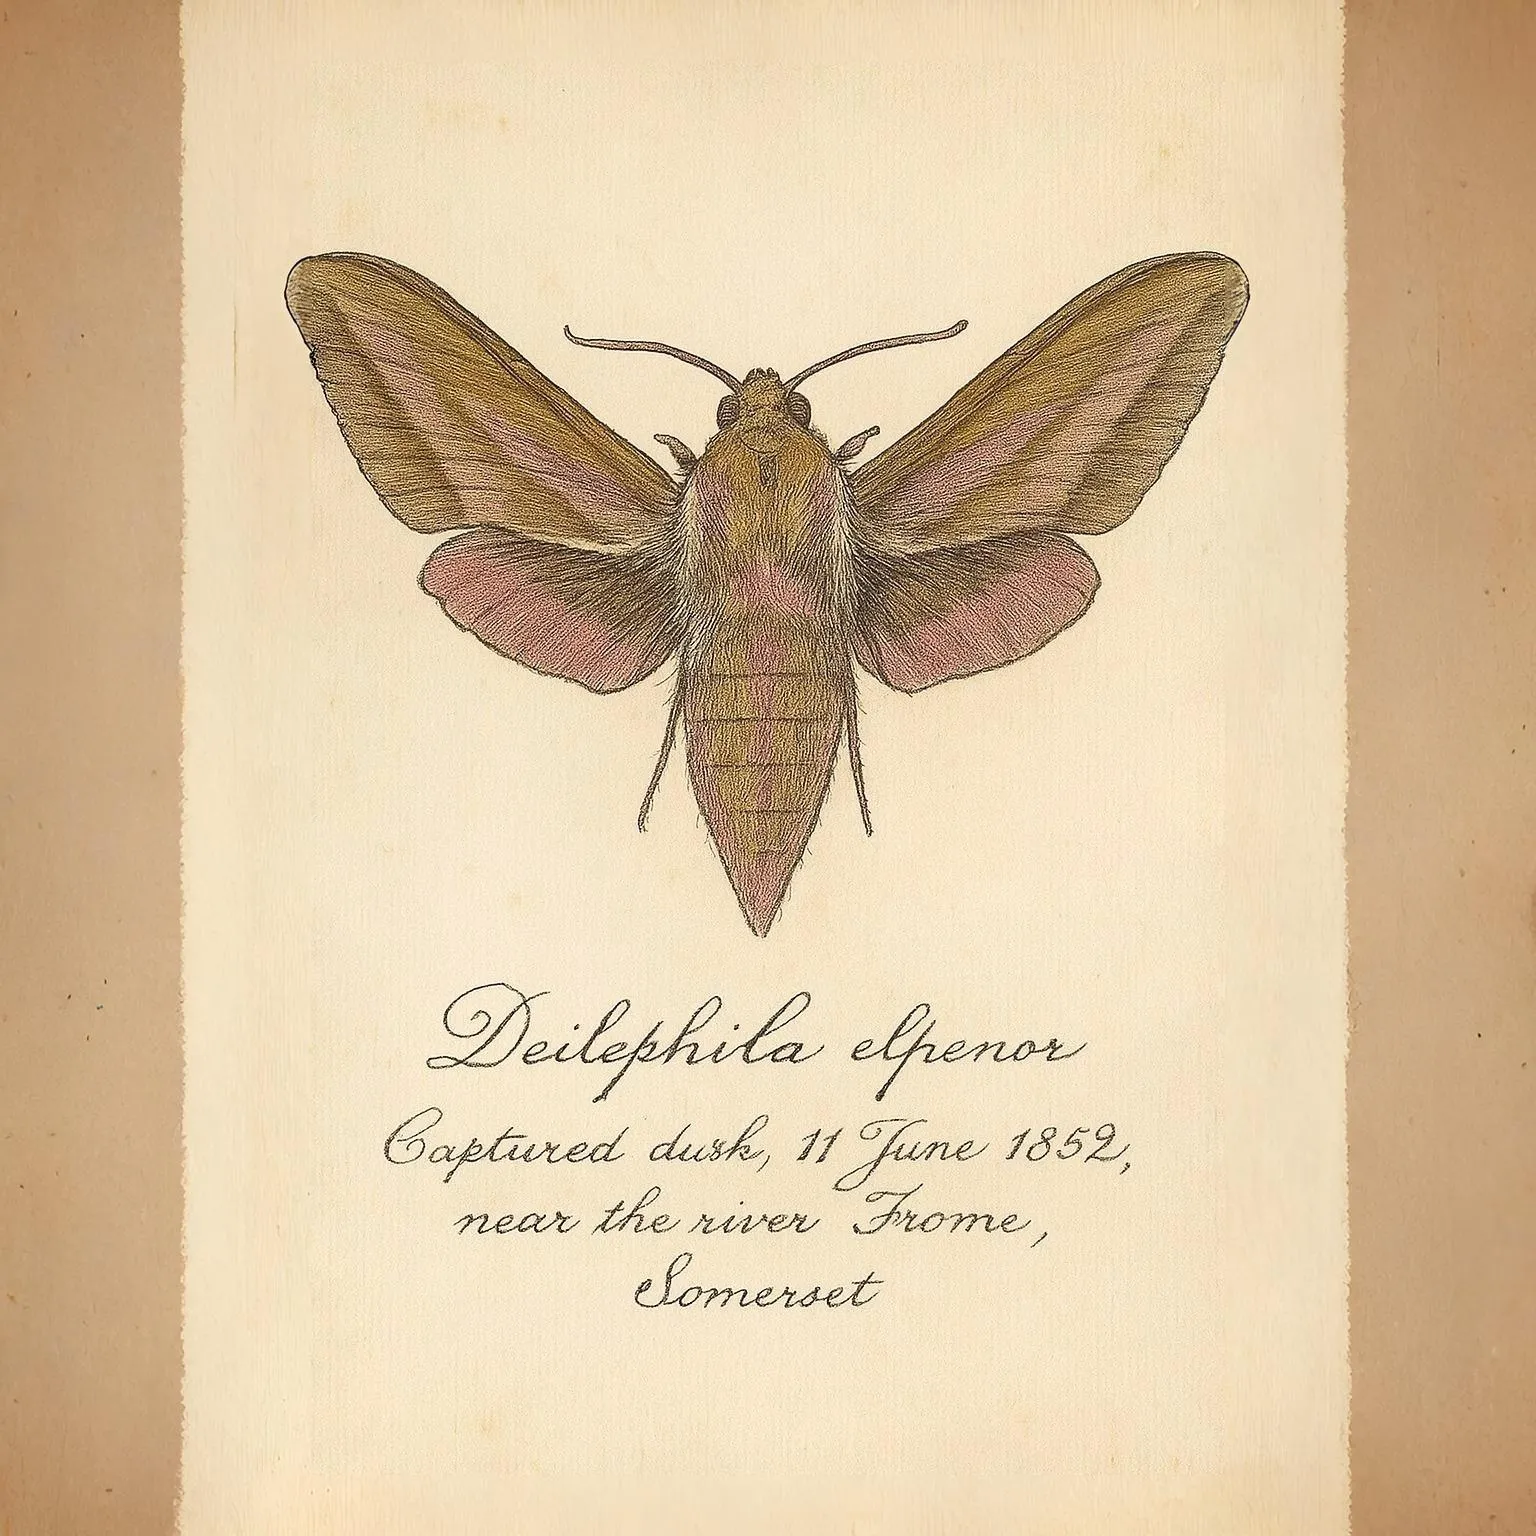 Deilephila elpenor
Captured dusk, 11 June 1852,
near the river Frome,
Somerset